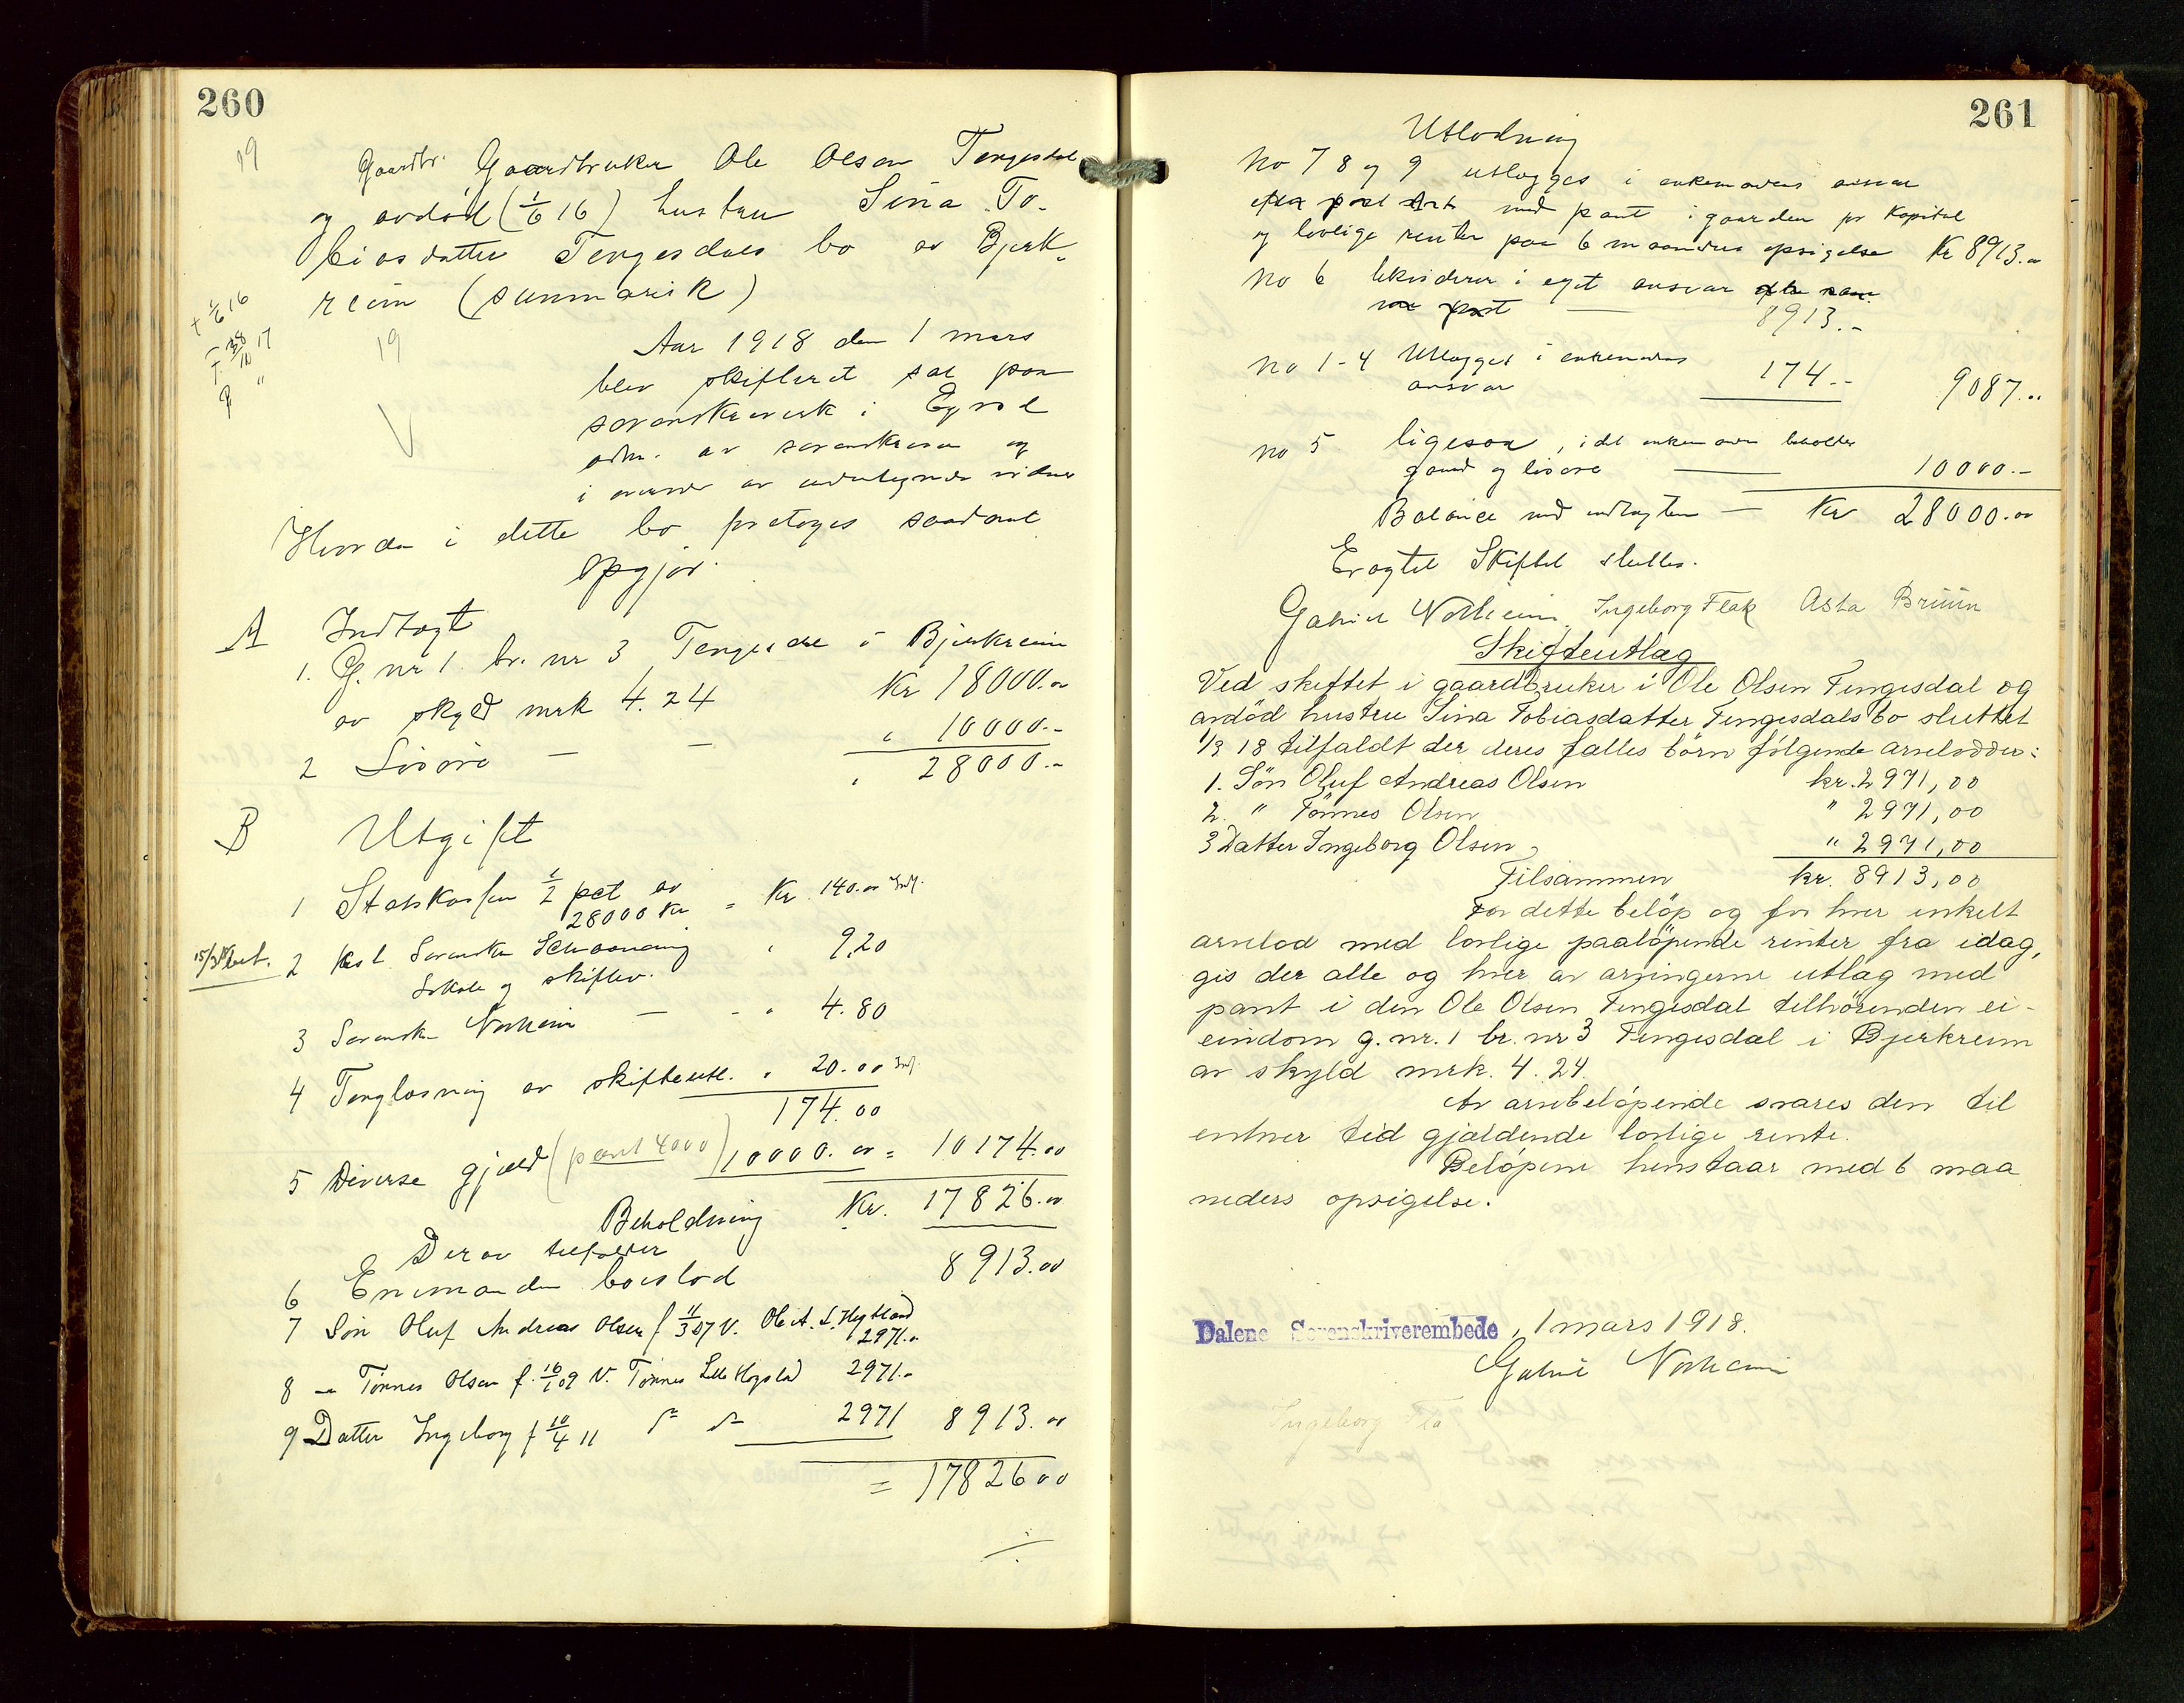 260
19
Gaardbr. Gaardbruker Ole Olsen Tengesdal
og avdöd (1/6 16) hustru Sina To-
biasdatter Tengesdals bo av Bjerk-
reim (summarisk)
+ 1/6 16
19
Aar 1918 den 1 mars
blev skifteret sat paa
sorenskriverk. i Egersd
adm. av sorenskriveren og
i overvær av undertegnede vidner
Hvorda i dette bo foretoges saadant
Opgjør.
A Indtægt
1. G. nr 1 br. nr 3 Tengesdal i Bjerkreim
av skyld mrk 4.24 Kr 18000.00
2 Lösöre — — " 10000.-
" 28000.-
B Utgift
1 Statskassen 1/2 pct av
28000 Kr = Kr. 140.00 Indf.
15/3 18 bet. 2 Kst. Sorenskr. Schaanning
Lokale og skiftev. " 9,20
3 Sorenskr. Norheim — - " 4.80
4 Tinglæsning av skifteutl. " 20.00 Indf.
174.00
5 Diverse gjæld (pant 4000) 10000.00 = 10174.00
Beholdning Kr. 17826.00
Derav tilfalder
6 Enkemanden boeslod 8913.00
7 Sön Oluf Andreas Olsen f 11/3 07 V. Ole A. L. Hegtland
2971.-
8 — Tönnes Olsen f. 16/1 09 V. Tönnes Log 2971.-
9 Datter Ingeborg f 10/4 11 2971 8913.00
= 17826 00
261
Utlodning
No 7 8 og 9 utlægges i enkemandens ansvar
med pant i gaarden for Kapital
og lovlige renter paa 6 maaneders opsigelse Kr 8913.00
No 6 likviderer i eget ansvar
8913.-
No 1-4 Utlægges i enkemandens
ansvar 174.- 9087.00
No 5 ligesaa, idet enkemanden beholder
gaard og lösöre — 10000.-
Balance med indtægten — Kr 28000.00
Eragtet Skiftet sluttes.
Gabriel Norheim Ingeborg Flak Asta Brüün
Skifteutlæg
Ved skiftet i gaardbruker i Ole Olsen Tengesdal og
avdöd hustru Sina Tobiasdatter Tengesdals bo sluttet
1/3 18 tilfaldt der deres fælles börn fölgende arvelodder:
1. Sön Oluf Andreas Olsen kr. 2971,00
2. " Tönnes Olsen " 2971,00
3 Datter Ingeborg Olsen " 2971,00
Tilsammen kr. 8913,00
For dette belöp og for hver enkelt
arvelod med lovlige paalöpende renter fra idag,
gis der alle og hver av arvingerne utlæg med
pant i den Ole Olsen Tengesdal tilhörenden ei-
eindom g. nr. 1 br. nr 3 Tengesdal i Bjerkreim
av skyld mrk. 4.24.
Av arvebelöpende svares den til
enhver tid gjældende lovlige rente.
Belöpene henstaar med 6 maa
neders opsigelse.
Dalene Sorenskriverembede, 1 mars 1918.
Gabriel Norheim
Ingeborg Fla